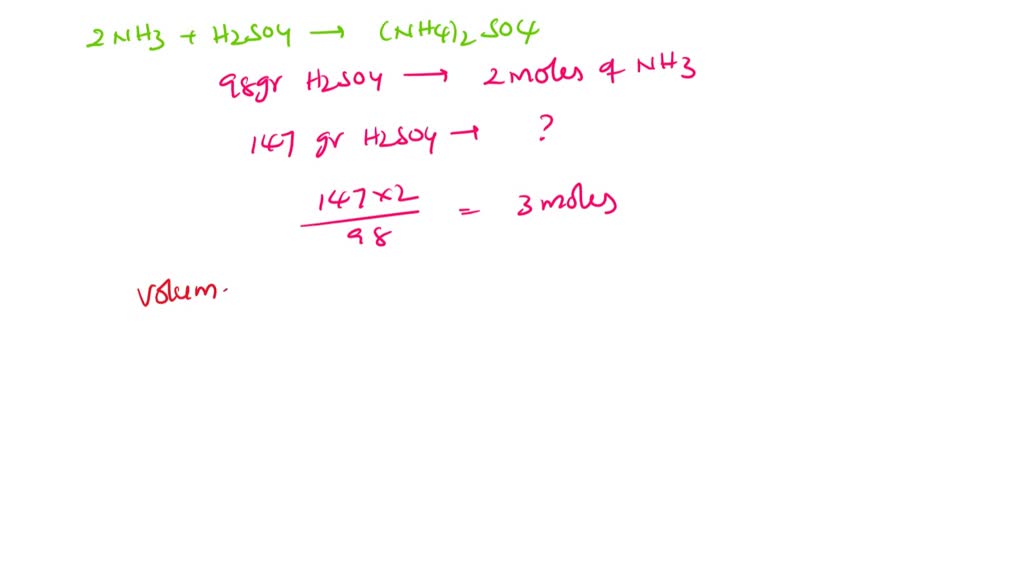 2NH3 + H2SO4 → (NH4)2 SO4
98gr H2SO4 → 2 moles of NH3
147 gr H2SO4 → ?
147×2
98
= 3 moles
Volum.